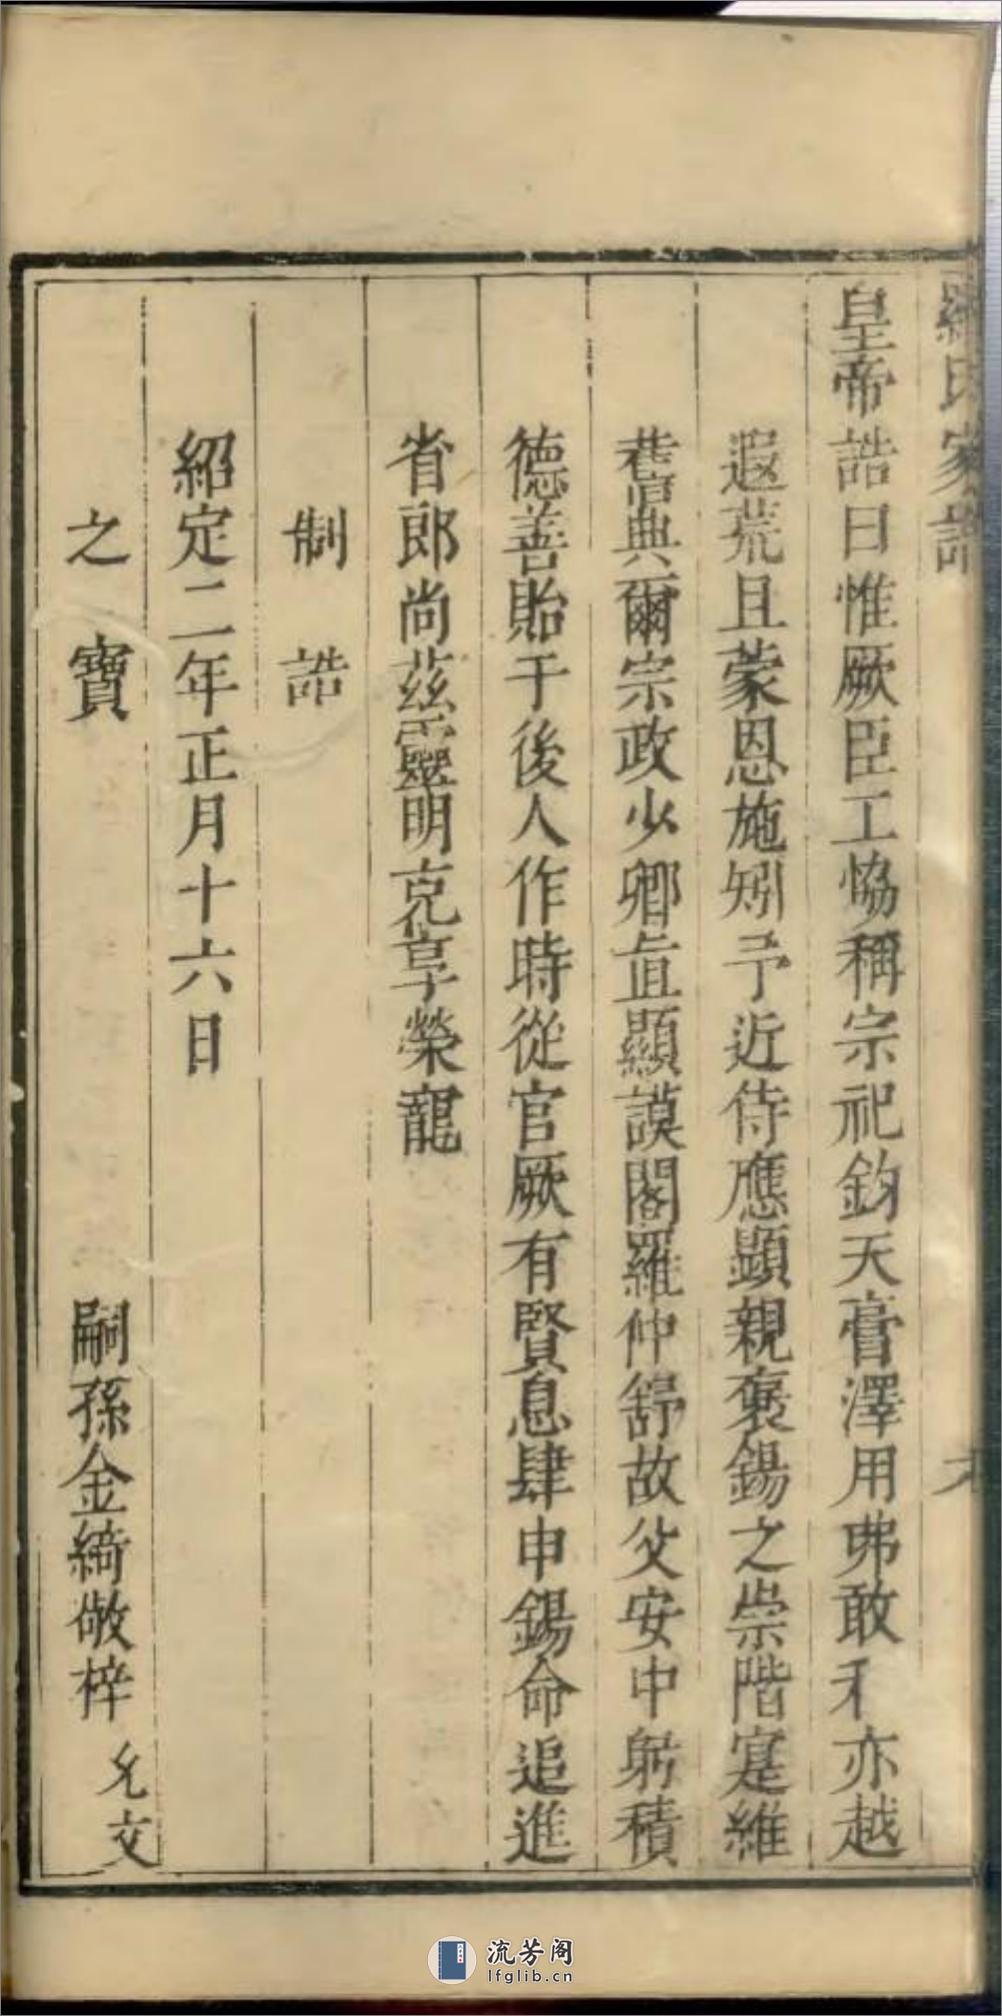 羅氏家譜
皇帝誥曰惟厥臣工協稱宗祀鈞天膏澤用弗敢私亦越
遐荒且蒙恩施矧予近侍應顯親褒錫之崇階寔維
舊典爾宗政少卿直顯謨閣羅仲舒故父安中躬積
德善貽于後人作時從官厥有賢息肆申錫命追進
省郎尚茲靈明克享榮寵
制誥
紹定二年正月十六日
之寶
嗣孫金綺敬梓 允文
流芳阁
lfglib.cn